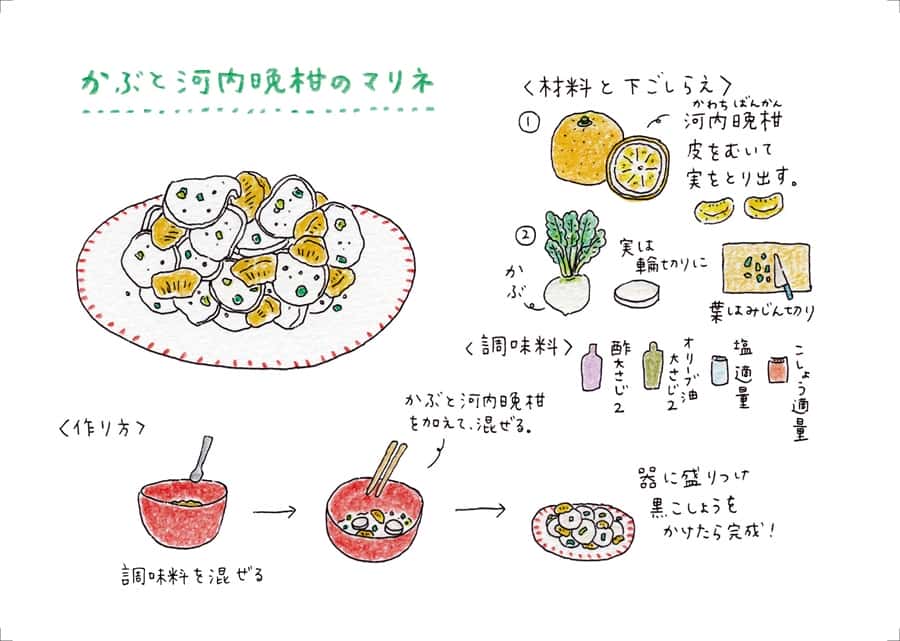 かぶと河内晩柑のマリネ
〈材料と下ごしらえ〉
①
かわちばんかん
河内晩柑
皮をむいて
実をとり出す。
②
かぶ
実は
輪切りに
葉はみじん切り
〈調味料〉
酢大さじ2
オリーブ油
大さじ2
塩適量
こしょう適量
〈作り方〉
調味料を混ぜる
かぶと河内晩柑
を加えて、混ぜる。
器に盛りつけ
黒こしょうを
かけたら完成!